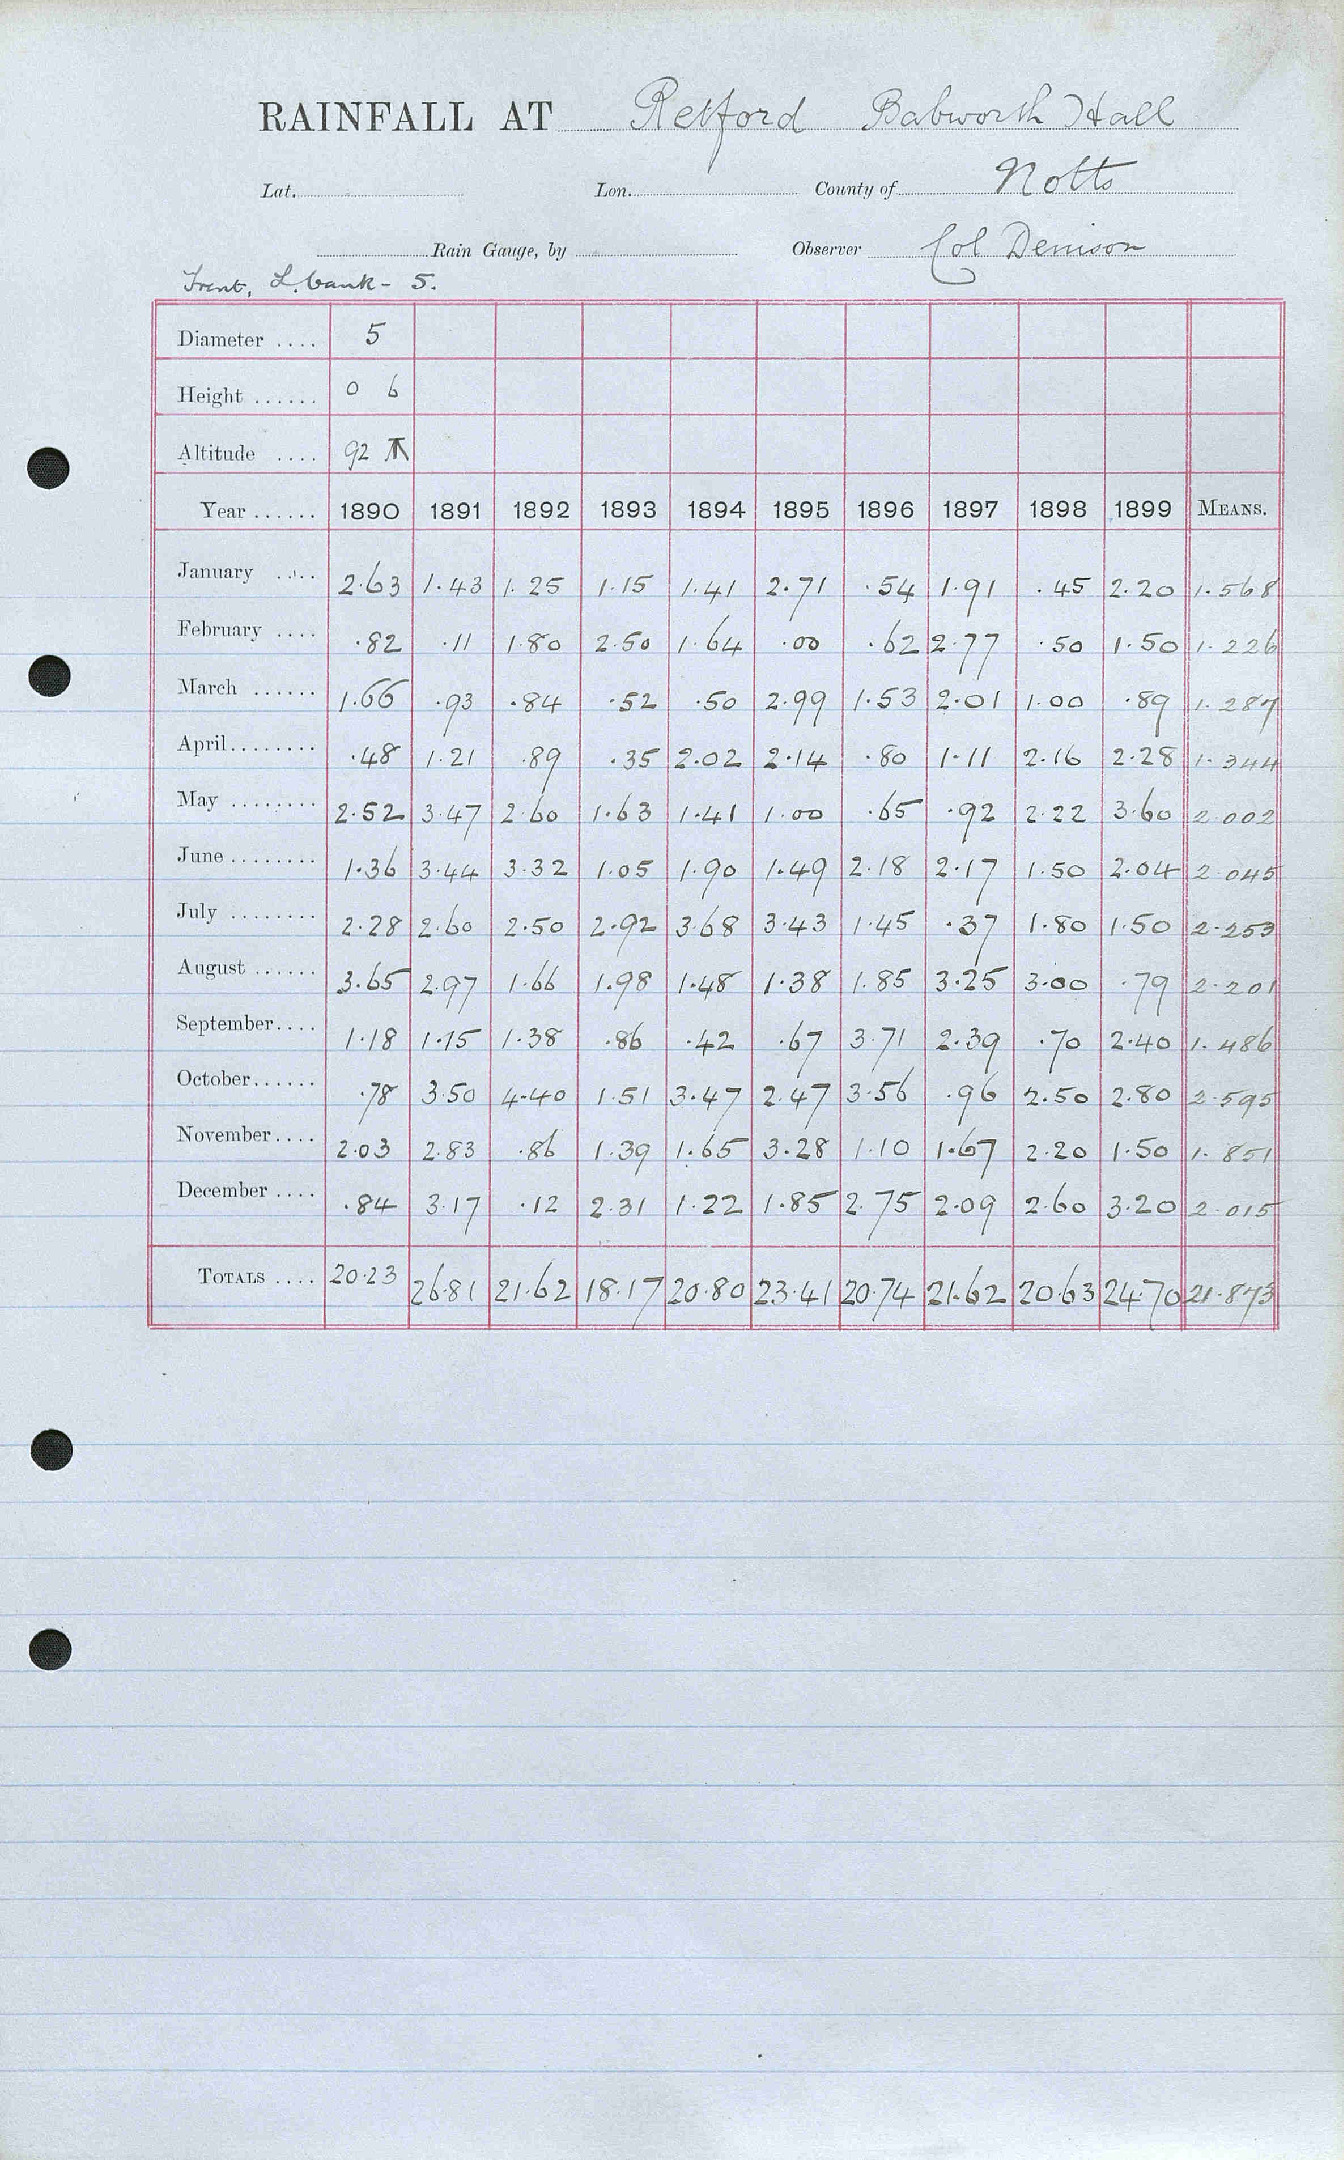 RAINFALL AT Retford Babworth Hall
Lat. Lon. County of Notts
Rain Gauge, by Observer Col Denison
Trent, L. bank - 5.
Diameter .... 5
Height ...... 0 6
Altitude .... 92
Year ...... 1890 1891 1892 1893 1894 1895 1896 1897 1898 1899 MEANS.
January .... 2.63 1.43 1.25 1.15 1.41 2.71 .54 1.91 .45 2.20 1.568
February .... .82 .11 1.80 2.50 1.64 .00 .62 2.77 .50 1.50 1.226
March ...... 1.66 .93 .84 .52 .50 2.99 1.53 2.01 1.00 .89 1.287
April ........ .48 1.21 .89 .35 2.02 2.14 .80 1.11 2.16 2.28 1.344
May ........ 2.52 3.47 2.60 1.63 1.41 1.00 .65 .92 2.22 3.60 2.002
June ........ 1.36 3.44 3.32 1.05 1.90 1.49 2.18 2.17 1.50 2.04 2.045
July ........ 2.28 2.60 2.50 2.92 3.68 3.43 1.45 .37 1.80 1.50 2.253
August ...... 3.65 2.97 1.66 1.98 1.48 1.38 1.85 3.25 3.00 .79 2.201
September .... 1.18 1.15 1.38 .86 .42 .67 3.71 2.39 .70 2.40 1.486
October ...... .78 3.50 4.40 1.51 3.47 2.47 3.56 .96 2.50 2.80 2.595
November .... 2.03 2.83 .86 1.39 1.65 3.28 1.10 1.67 2.20 1.50 1.851
December .... .84 3.17 .12 2.31 1.22 1.85 2.75 2.09 2.60 3.20 2.015
TOTALS .... 20.23 26.81 21.62 18.17 20.80 23.41 20.74 21.62 20.63 24.70 21.873